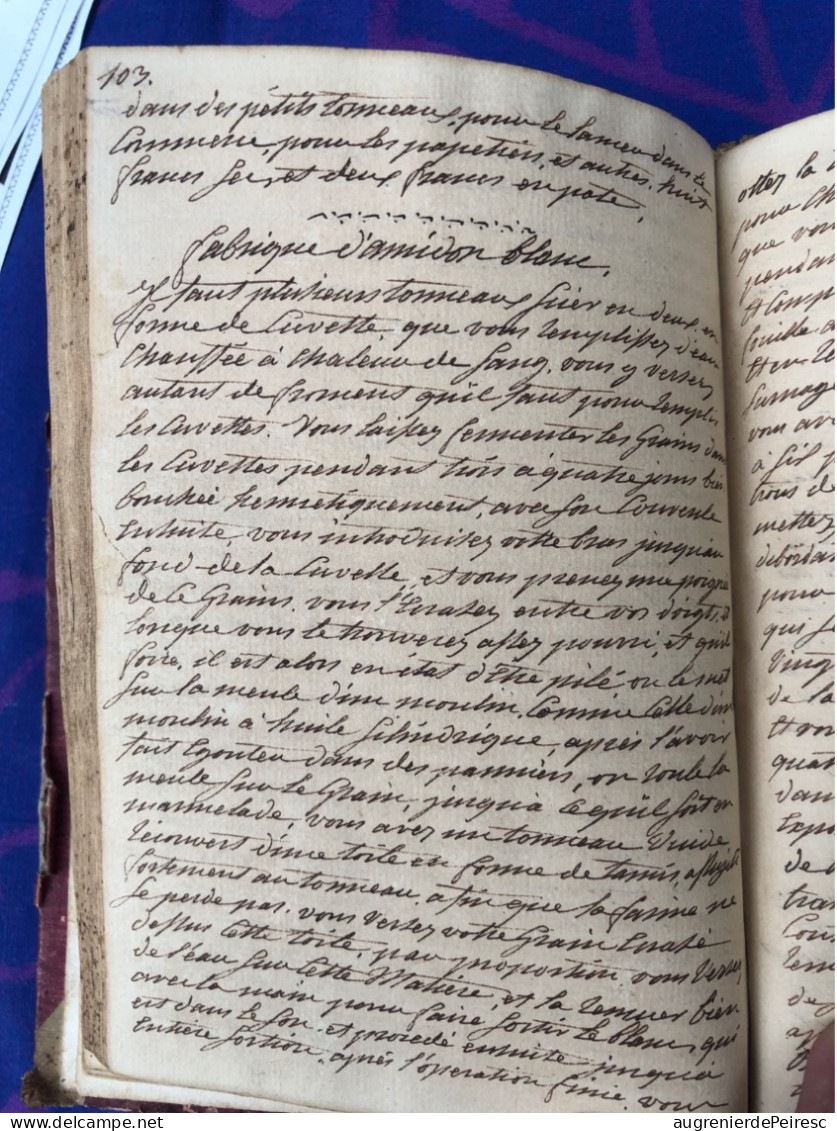 103.
dans des petits tonneaux, pour le lancer dans le
Commerce, pour les papetiers, et autres. huit
francs sec, et deux francs en pate.
fabrique d'amidon blanc.
Il faut plusieurs tonneaux scier en deux, en
forme de Cuvette, que vous remplissez d'eau
Chauffée à chaleur de sang. vous y versez
autant de froment qu'il faut pour remplir
les Cuvettes. Vous laissez fermenter les grains dans
les Cuvettes pendant trois à quatre jours bien
bouchée hermetiquement, avec son Couvercle
Ensuite, vous introduisez votre bras jusqu'au
fond de la Cuvette, et vous prenez une poignée
de ce Grains. vous l'Ecrasez entre vos doigts, et
lorsque vous le trouverez assez pourri, et qu'il
foire, il est alors en état d'être pilé ou le met
sur la meule d'un moulin. Comme celle d'un
moulin à huile Silindrique, après l'avoir
fait Egouter dans des panniers, on roule la
meule sur le Grain, jusqu'à ce qu'il soit en
marmelade, vous avez un tonneau Vuide
recouvert d'une toile en forme de tamis, assujeti
fortement au tonneau. afin que la farine ne
se perde pas. vous versez votre Grain Ecrasé
dessus cette toile, par proportion vous Versez
de l'eau sur cette Matière, et la remuer bien
avec la main pour faire sortir le blanc, qui
est dans le son. et procedé ensuite jusqu'à
Entière sortion. après l'operation finie. vous
otter la
pour
que vou
pendan
et
fouille
et en
Surnage
vous ave
à
trous de
mettez
debordan
pour
qui
Vingt
de la
et vo
quat
dan
Exp
de
tra
Cou
rem
augrenierdePeiresc
delcampe.net